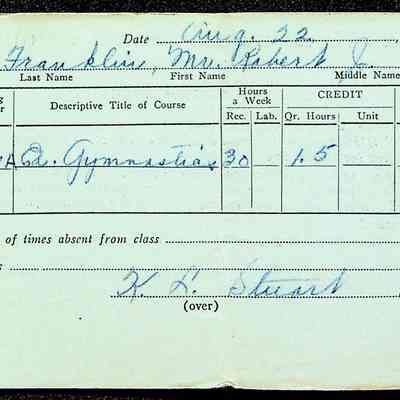 Date Aug. 22
Franklin, Mr. Robert J.
Last Name First Name Middle Name
Descriptive Title of Course Hours a Week CREDIT
Rec. Lab. Qr. Hours Unit
A Gymnastics 30 1.5
of times absent from class
K. L. Stuart
(over)